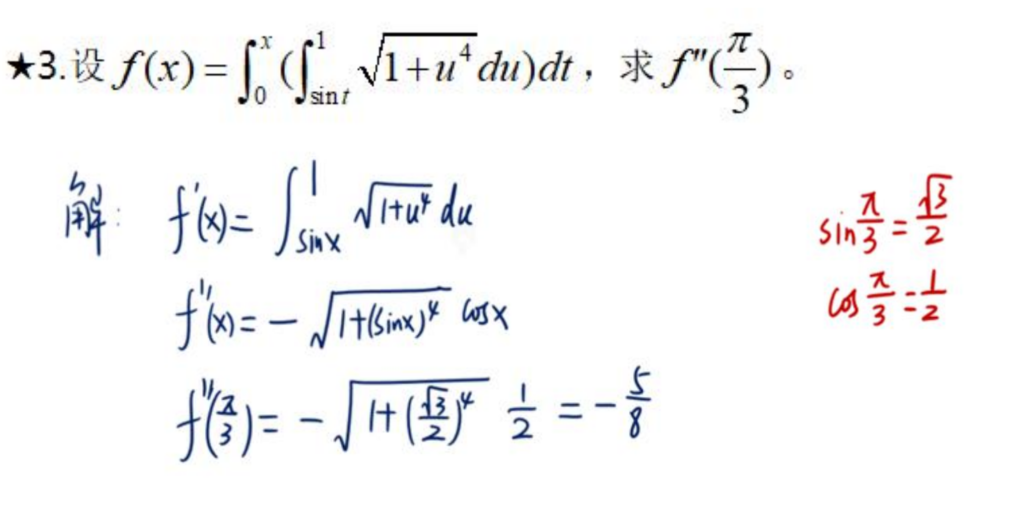 ★3.设 f(x)=∫₀ˣ(∫_{sin t}^{1} √(1+u⁴) du)dt，求 f''(π/3)。
解: f'(x)= ∫_{sinx}^{1} √(1+u⁴) du
f''(x)= -√(1+(sinx)⁴) cosx
f''(π/3)= -√(1+(√3/2)⁴) 1/2 = -5/8
sin π/3 = √3/2
cos π/3 = 1/2